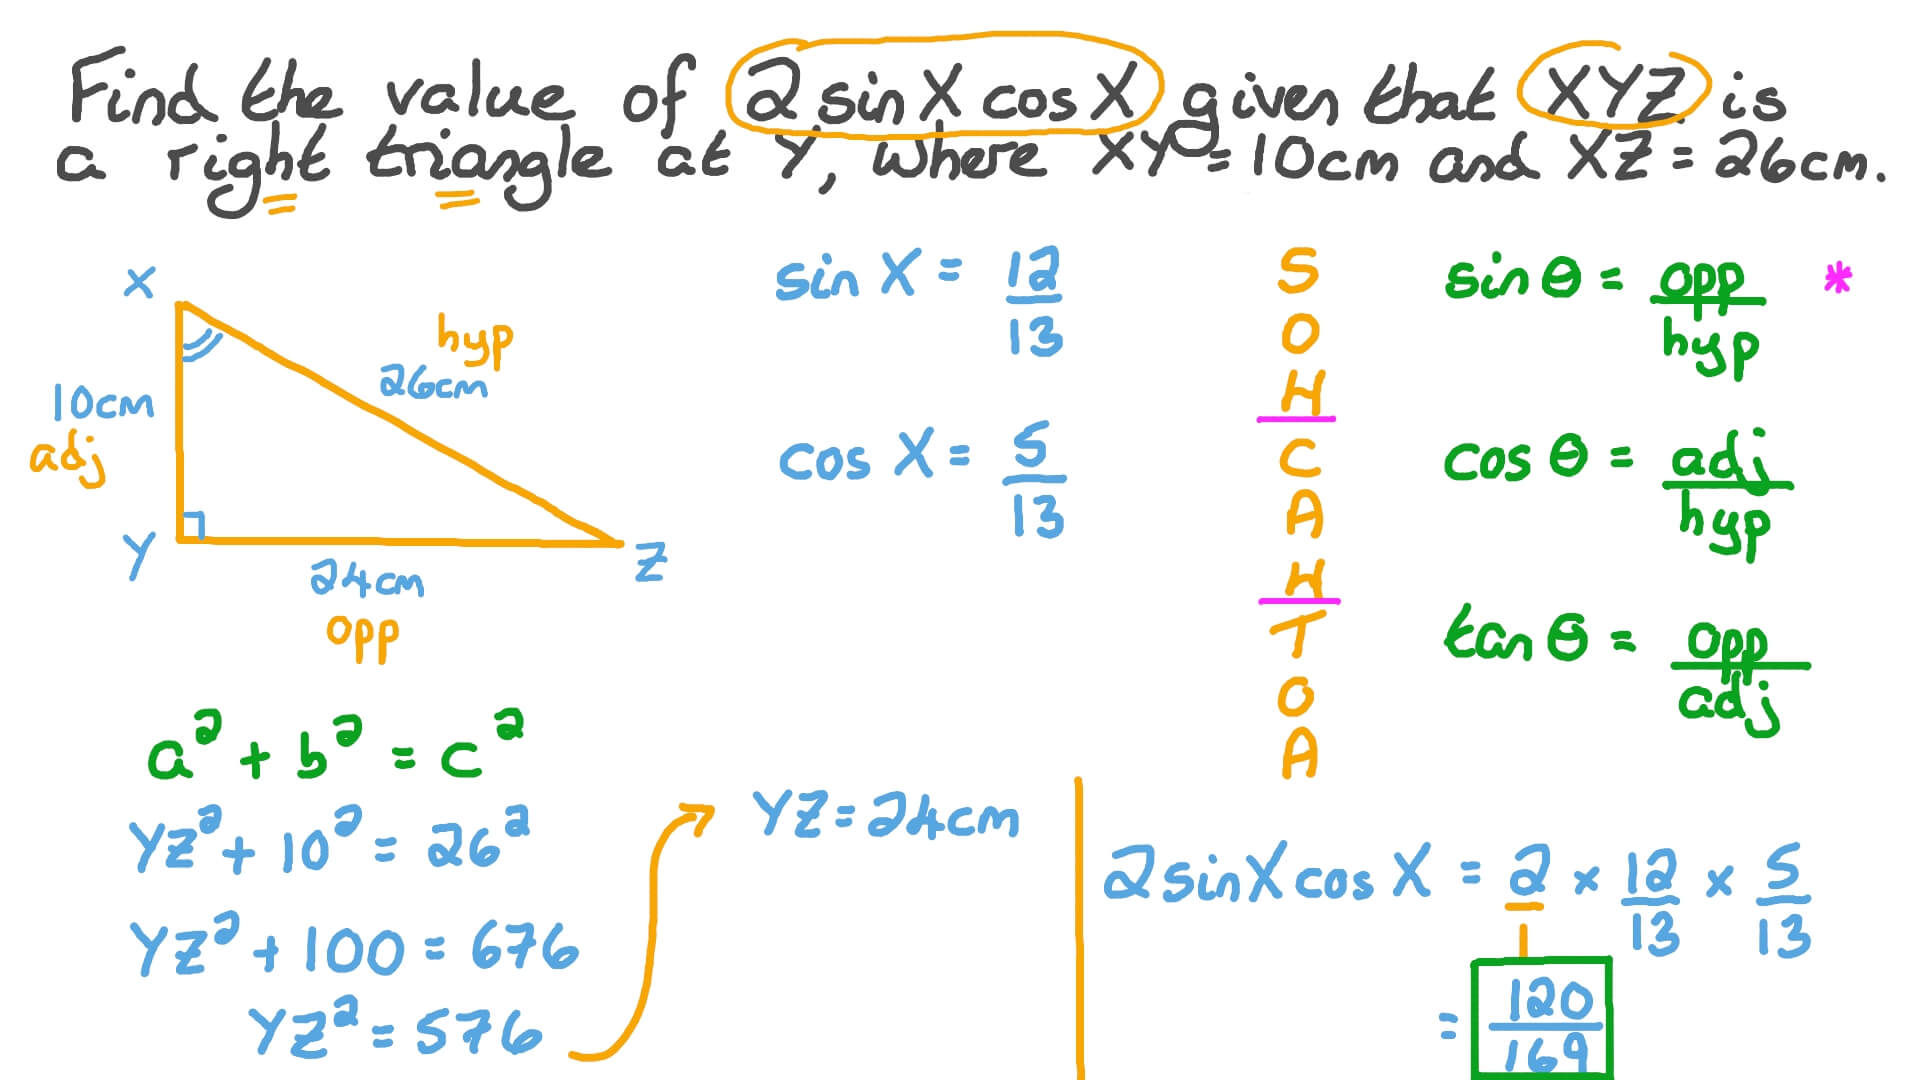 Find the value of 2 sin X cos X given that XYZ is
a right triangle at Y, where XY = 10cm and XZ = 26cm.
X
hyp
26cm
10cm
adj
Y
Z
24cm
opp
sin X = 12/13
cos X = 5/13
S
O
H
C
A
H
T
O
A
sin θ = opp/hyp *
cos θ = adj/hyp
tan θ = opp/adj
a² + b² = c²
YZ² + 10² = 26²
YZ² + 100 = 676
YZ² = 576
YZ = 24cm
2 sin X cos X = 2 × 12/13 × 5/13
= 120/169